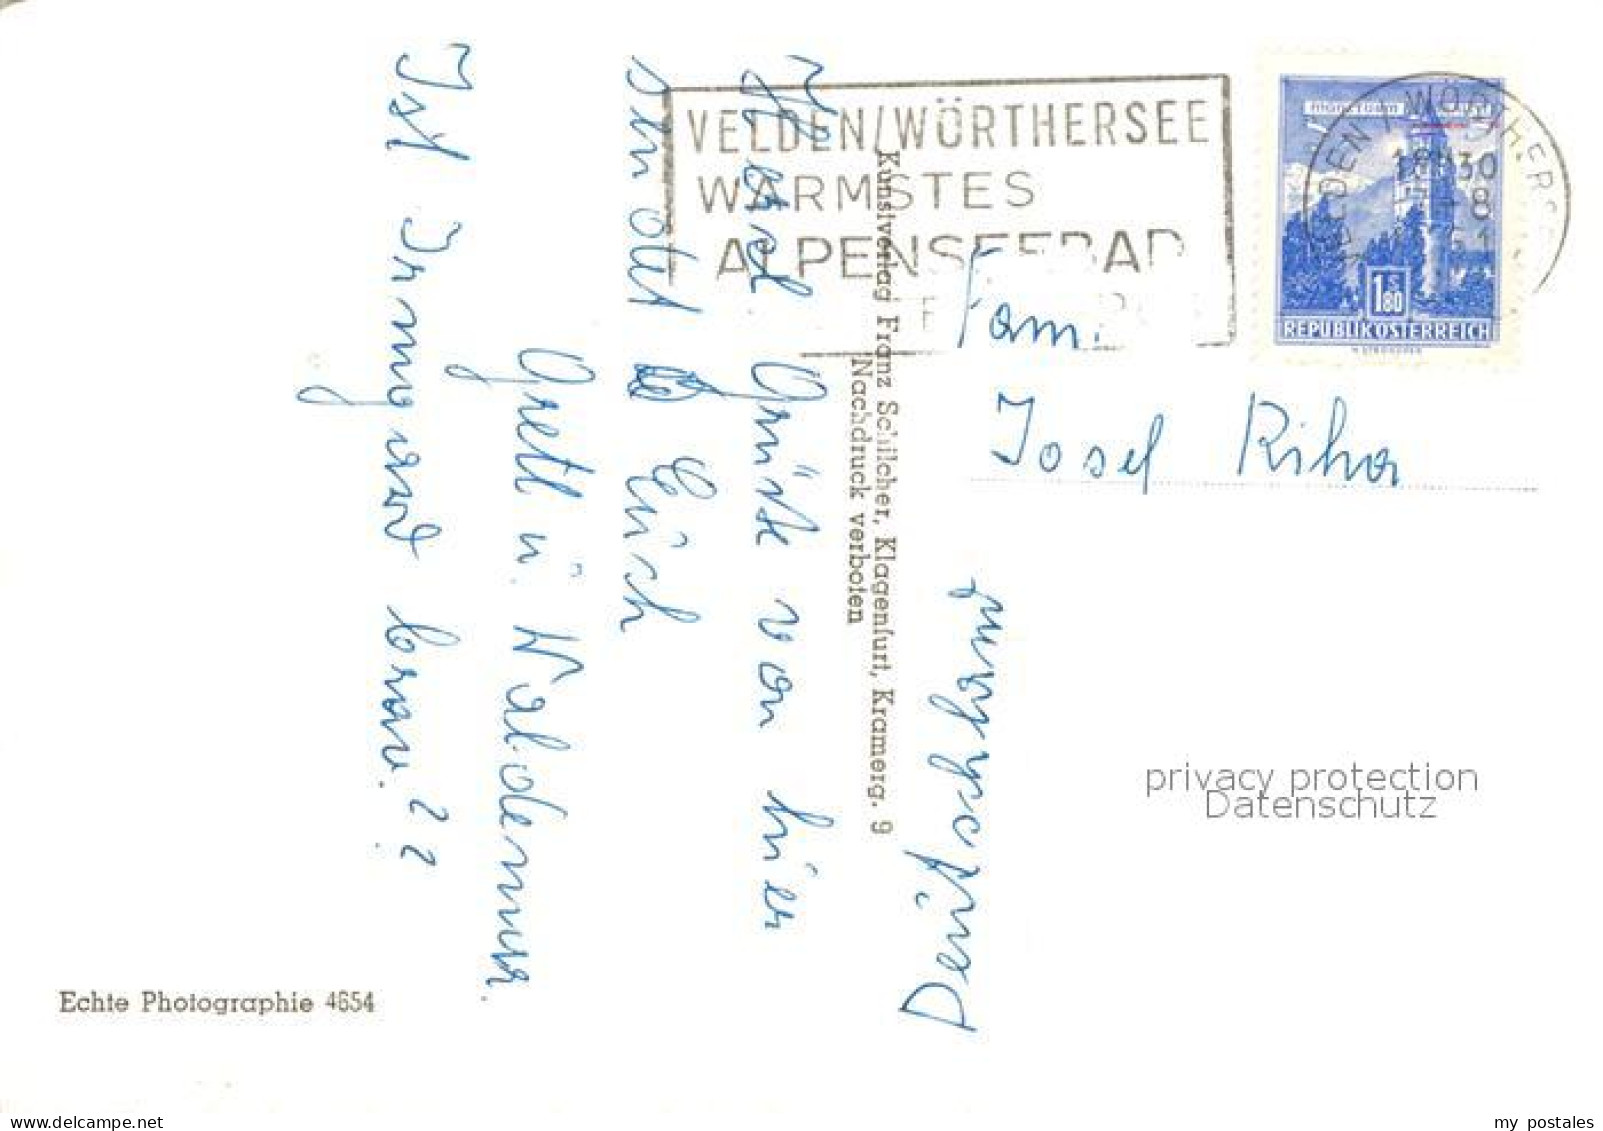 VELDEN/WÖRTHERSEE
WARMSTES
ALPENSEEBAD
VELDEN WÖRTHERSEE
18 30
7-8
61
1 S 80
REPUBLIK ÖSTERREICH
Fam.
Josef Riha
Deutschland
Herzl Grüße von hier
sendet Euch
Gretl u. Waldemar.
Ist Irmgard brav??
Kunstverlag Franz Schilcher, Klagenfurt, Kramerg. 9
Nachdruck verboten
Echte Photographie 4654
privacy protection
Datenschutz
delcampe.net
my_postales